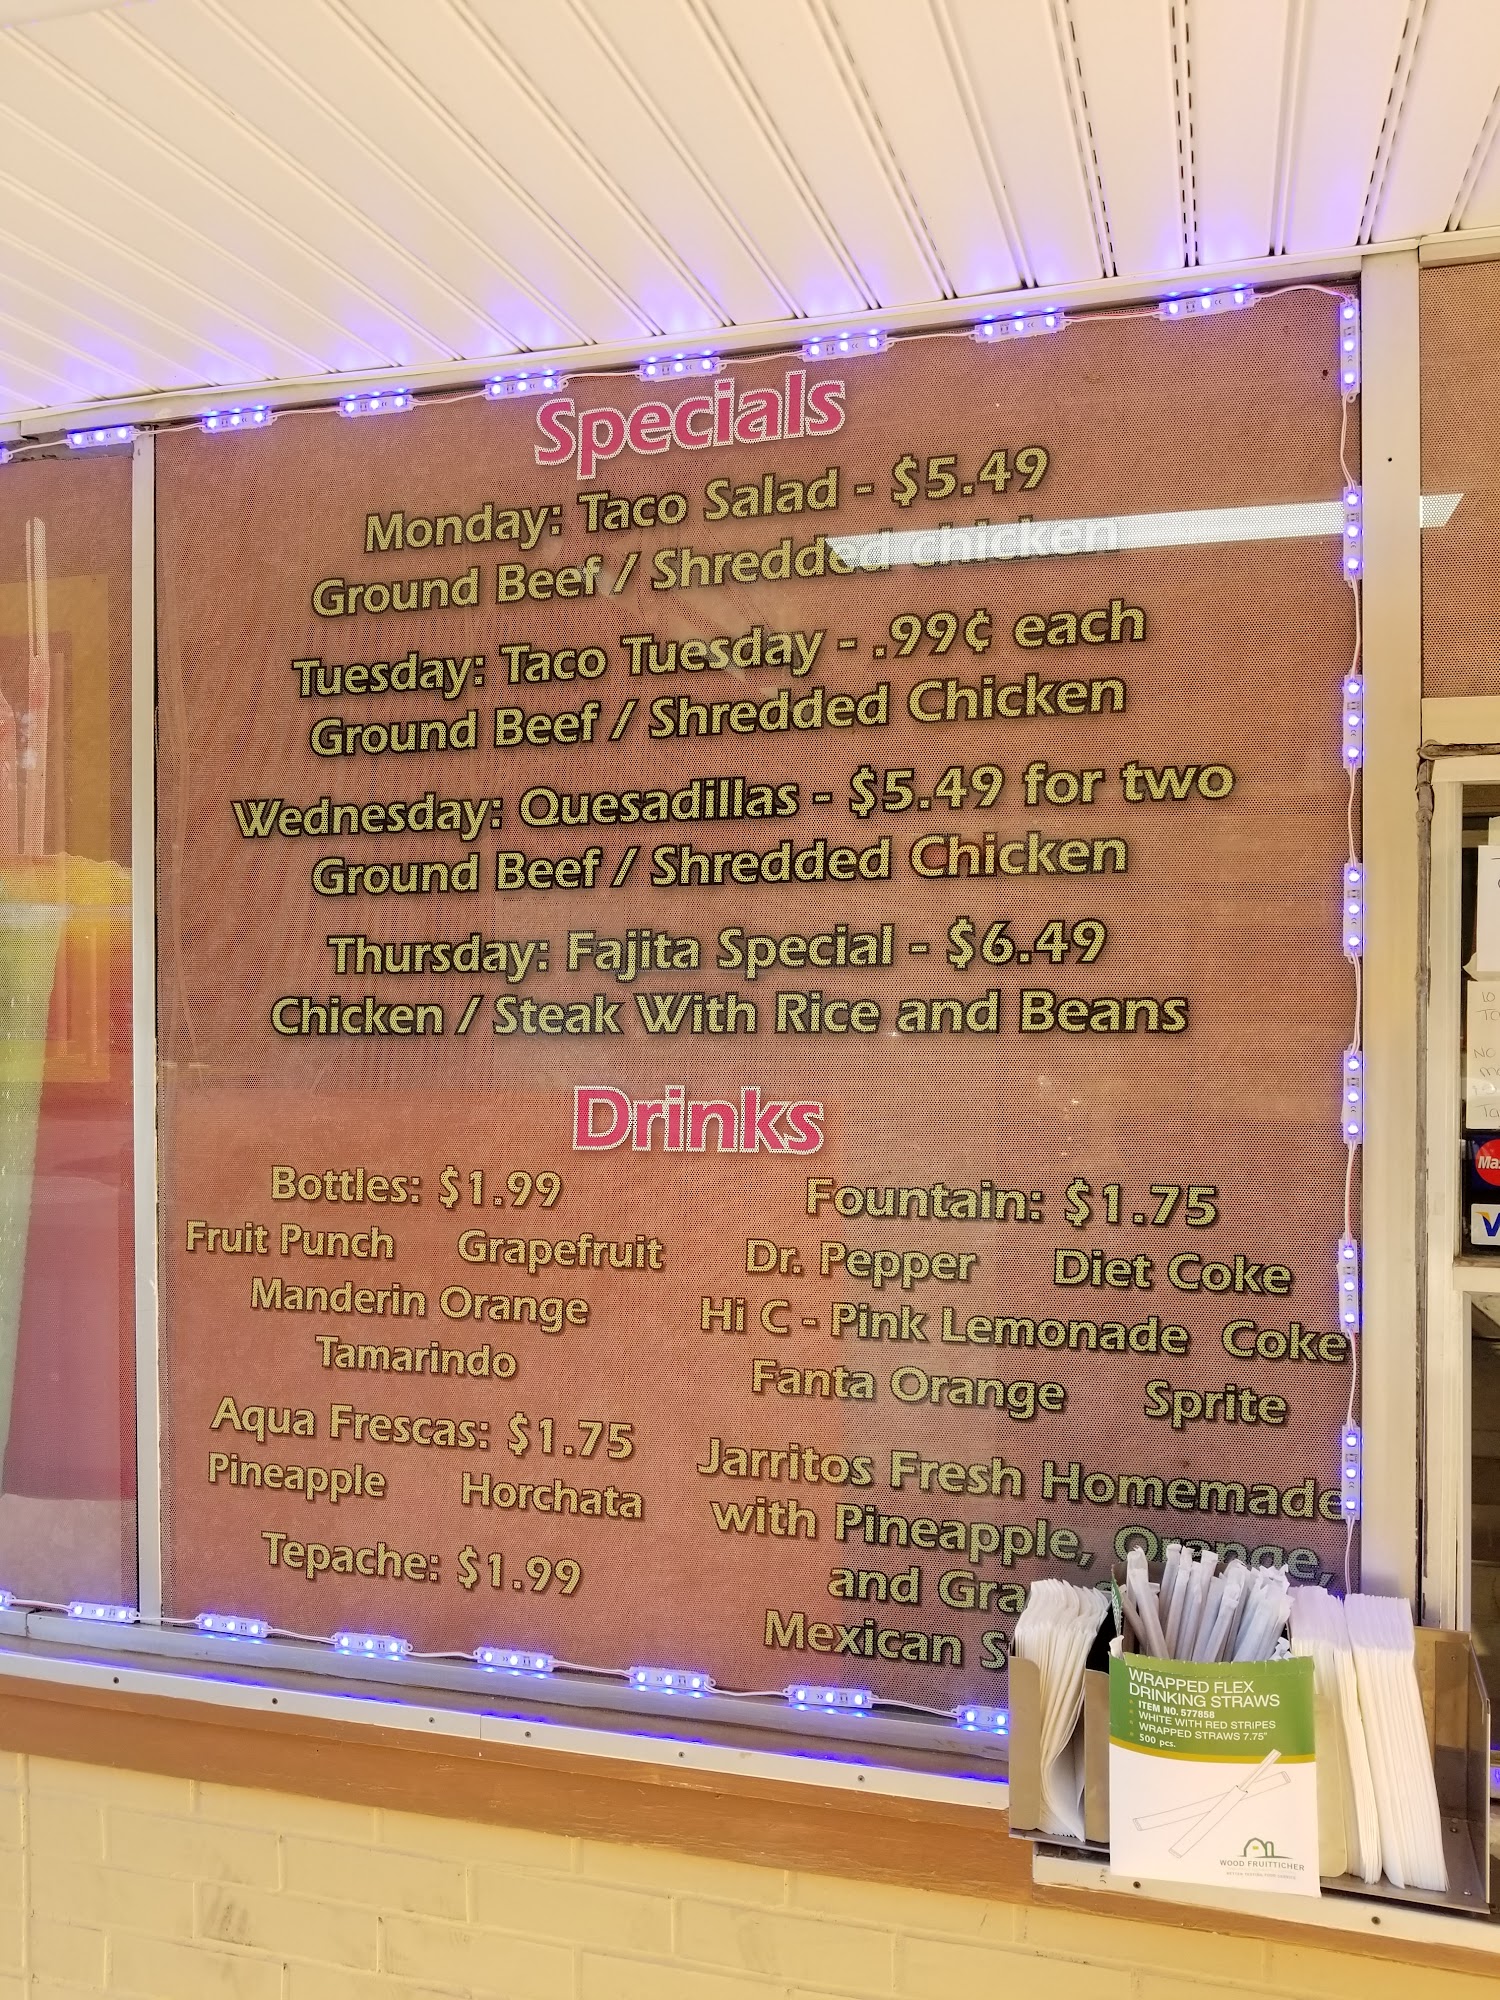 Specials
Monday: Taco Salad - $5.49
Ground Beef / Shredded chicken
Tuesday: Taco Tuesday - .99¢ each
Ground Beef / Shredded Chicken
Wednesday: Quesadillas - $5.49 for two
Ground Beef / Shredded Chicken
Thursday: Fajita Special - $6.49
Chicken / Steak With Rice and Beans
Drinks
Bottles: $1.99
Fruit Punch Grapefruit
Manderin Orange
Tamarindo
Aqua Frescas: $1.75
Pineapple Horchata
Tepache: $1.99
Fountain: $1.75
Dr. Pepper Diet Coke
Hi C - Pink Lemonade Coke
Fanta Orange Sprite
Jarritos Fresh Homemade
with Pineapple, Orange,
and
Mexican
WRAPPED FLEX
DRINKING STRAWS
ITEM NO. 577858
WHITE WITH RED STRIPES
WRAPPED STRAWS 7.75"
500 pcs.
WOOD FRUITTICHER